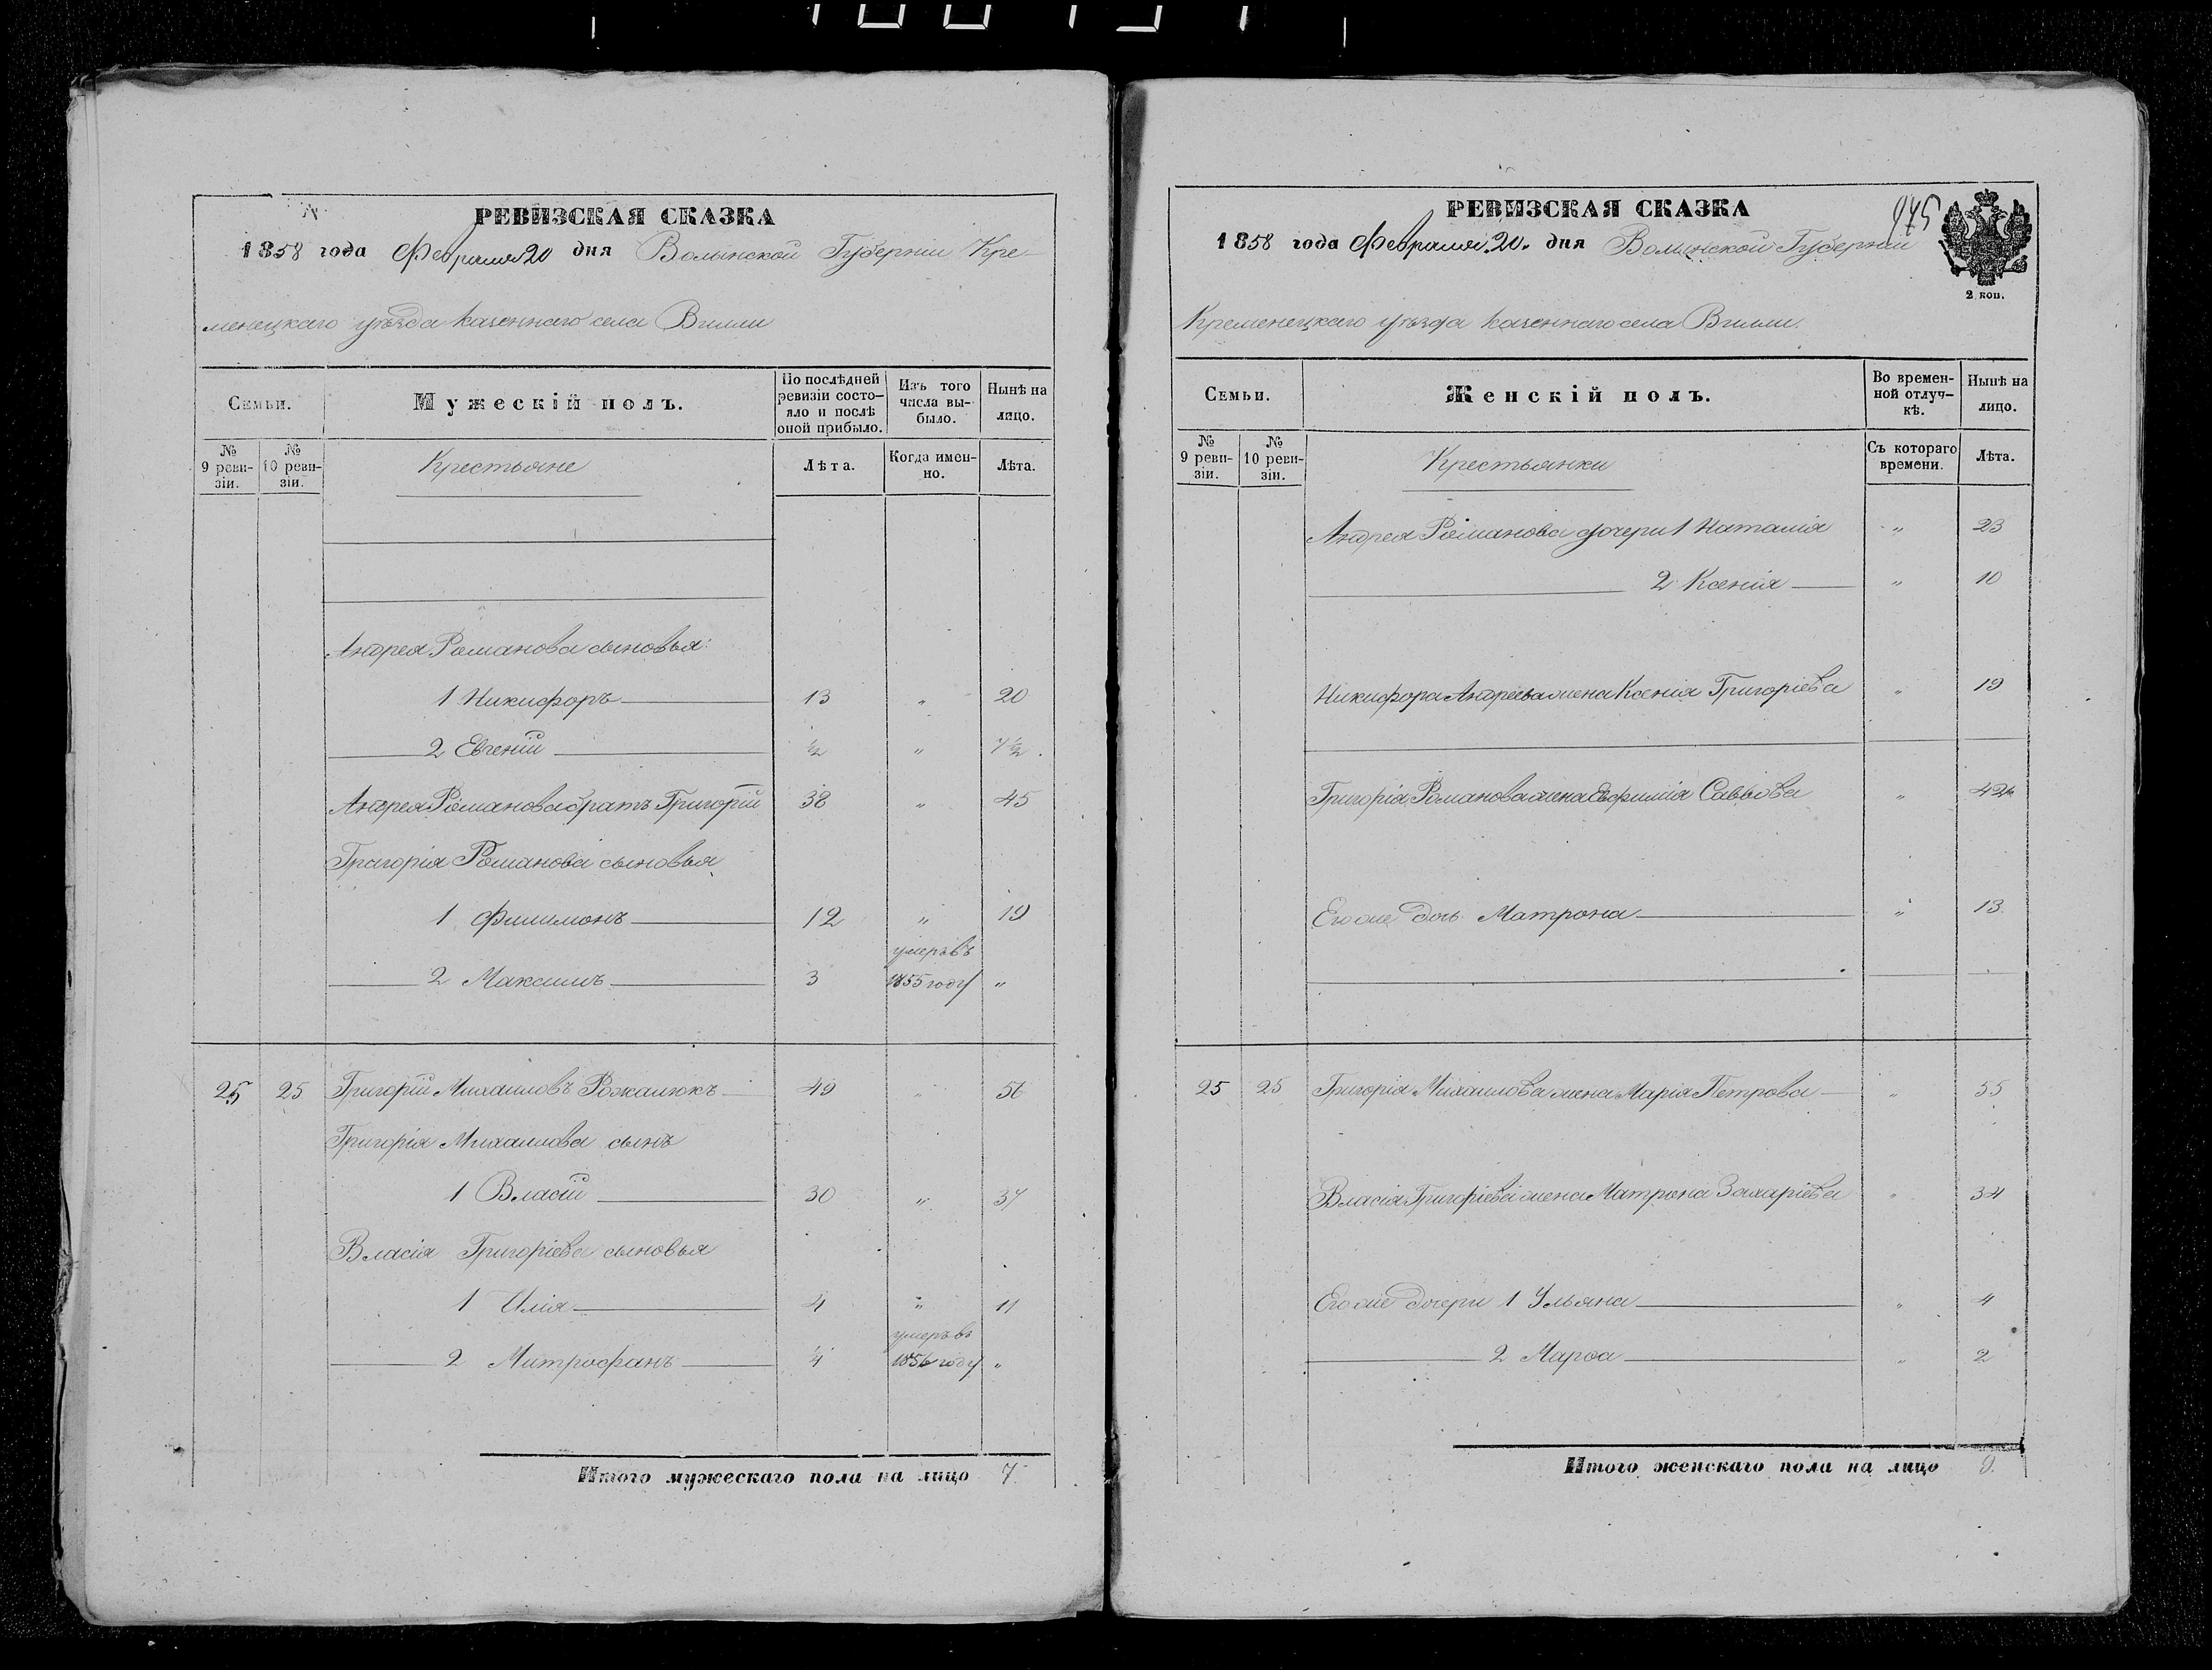 РЕВИЗСКАЯ СКАЗКА
1858 года Февраля 20 дня Волынской Губерніи Кре-
менецкаго уѣзда казеннаго села Вилии
Семьи.
Мужескій полъ.
По послѣдней ревизіи состо-яло и послѣ оной прибыло.
Изъ того числа вы-было.
Нынѣ на лицо.
№ 9 реви-зіи.
№ 10 реви-зіи.
Крестьяне
Лѣта.
Когда имен-но.
Лѣта.
Андрея Романова сыновья:
1 Никифоръ 13 " 20
2 Евгеній ½ " 7½
Андрея Романова братъ Григорій 38 " 45
Григорія Романова сыновья
1 Филимонъ 12 " 19
умеръ въ
2 Максимъ 3 1855 году "
25 25 Григорій Михаиловъ Рожанюкъ 49 " 56
Григорія Михаилова сынъ
1 Власій 30 " 37
Власія Григоріева сыновья
1 Илія 4 " 11
умеръ въ
2 Митрофанъ ¼ 1856 году "
Итого мужескаго пола на лицо 7.
РЕВИЗСКАЯ СКАЗКА
975
1858 года Февраля 20 дня Волынской Губерніи
2 коп.
Кременецкаго уѣзда казеннаго села Вилии.
Семьи.
Женскій полъ.
Во времен-ной отлуч-кѣ.
Нынѣ на лицо.
№ 9 реви-зіи.
№ 10 реви-зіи.
Крестьянки
Съ котораго времени.
Лѣта.
Андрея Романова дочери 1 Наталія " 23
2 Ксенія " 10
Никифора Андреева жена Ксенія Григоріева " 19
Григорія Романова жена Евфимія Саввова " 42
Его же дочь Матрона " 13
25 25 Григорія Михаилова жена Марія Петрова " 55
Власія Григоріева жена Матрона Захаріева " 34
Его же дочери 1 Ульяна " 4
2 Марѳа " 2
Итого женскаго пола на лицо 9.